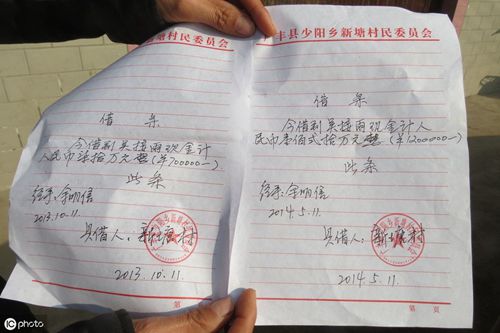 丰县少阳乡新塘村民委员会
借条
今借到吴接雨现金计
人民币柒拾万元整(¥700000—)
此条
经手:余明信
2013.10.11.
具借人:新塘村
2013.10.11.
第
丰县少阳乡新塘村民委员会
借条
今借到吴接雨现金计人
民币壹佰贰拾万元整(¥1200000—)
此条
经手:余明信
2014.5.11.
具借人:新塘村
2014.5.11.
第 页
iCphoto